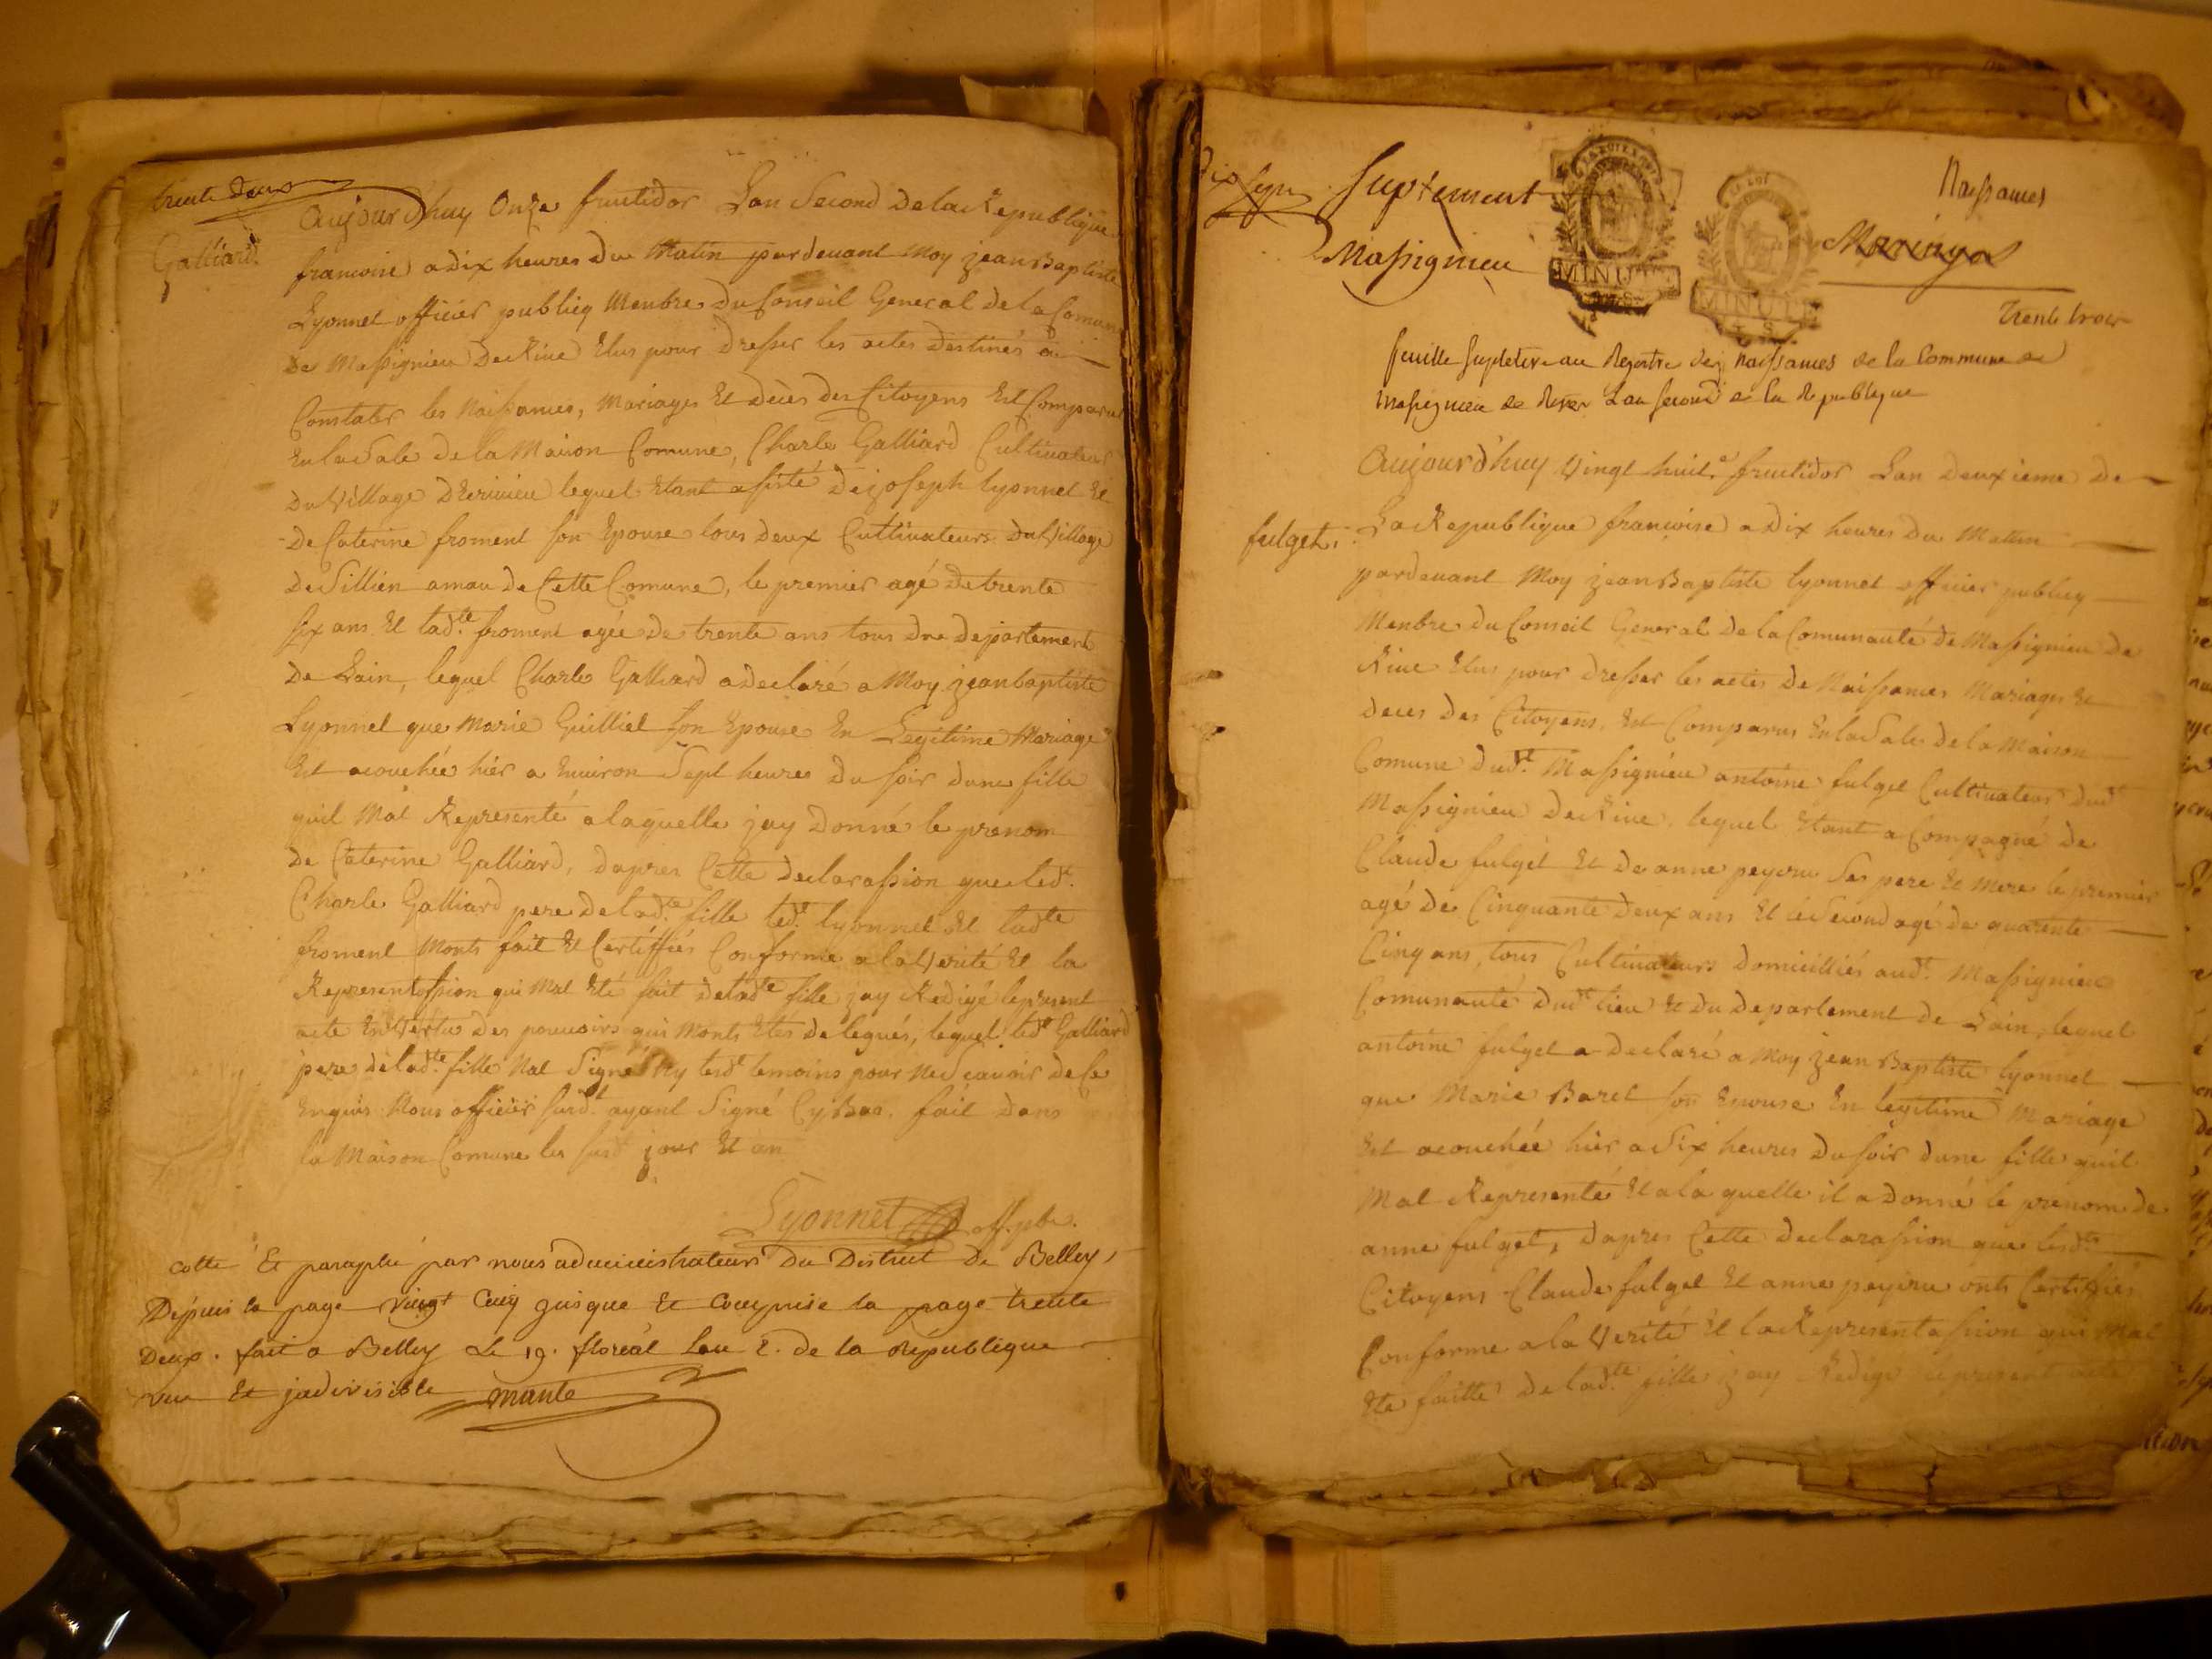 trente deux
Galliard.
Aujourd'huy Onze fructidor Lan Second de la Republique
francoise a dix heures du Matin pardevant Moy jean Baptiste
Lyonnet officier publicq Menbre du Conseil General de la Comune
de Massignieu de Rive Elus pour dresser les actes destinés a
Constater les Naissances, Mariages et décès des Citoyens Est Comparus
En la Sale de la Maison Comune, Charle Galliard Cultivateur
du Village lequel Etant asisté de joseph lyonnet Et
de Caterine froment son Epouse tous deux Cultivateurs du Village
de Sillien de Cette Comune, le premier agé de trente
six ans Et lad.te froment agée de trente ans tous du departement
de Lain, lequel Charle Galliard a declaré a Moy jean baptiste
Lyonnet que Marie Guilliet son Epouse En Legitime Mariage
Est acouchée hier a Environ Sept heures du soir dune fille
quil Mat Representé a laquelle jay donné le prenom
de Caterine Galliard, dapres Cette declarassion que led.t
Charle Galliard pere de lad.te fille led.t lyonnet Et lad.te
froment Monts fait Et Certiffiés Conforme a la Verité Et la
Representassion qui Mat Eté fait de lad.te fille jay Redigé le present
acte En Vertu des pouvoirs qui Monts Etés delegués, lequel led.t Galliard
pere de lad.te fille Nat Signé Ny lesd.t temoins pour Ne Scavoir de Ce
Enquis Nous officier susd.t ayant Signé Cy Bas. fait dans
la Maison Comune les susd jour Et an
Lyonnet off. pbc.
cotté Et paraphé par nous administrateurs Du District De Belley,
Depuis la page vingt Cinq jusque Et Comprise la page trente
Deux. fait a Belley Le 19. floréal L'an 2. de la République
une Et indivisible mante
Suplement
Massignieu
MINUTE
MINUTE
Naissances
Mariages
Trente trois
feuille supletive au Registre des naissances de la Commune de
Massignieu de Rive Lan second de la Republique
fulget,
Aujourd'huy Vingt huit.e fructidor Lan deuxieme de
La Republique francoise a dix heures du Matin
pardevant Moy jean Baptiste lyonnet officier publicq
Menbre du Conseil General de la Comunauté de Massignieu de
Rive Elus pour dresser les actes de Naissances Mariages Et
deces des Citoyens, Est Comparus En la Sale de la Maison
Comune dud.t Massignieu antoine fulget Cultivateur dud.t
Massignieu de Rive, lequel Etant a Compagné de
Claude fulget Et de anne peycru Ses pere Et mere le premier
agé de Cinquante deux ans Et le Second agé de quarente
Cinq ans, tous Cultivateurs domicilliés aud.t Massignieu
Comunauté dud.t lieu Et du departement de Lain, lequel
antoine fulget a declaré a Moy jean Baptiste lyonnet
que Marie Baret son Epouse En legitime Mariage
Est acouchée hier a Six heures du soir dune fille quil
Mat Representé Et a la quelle il a donné le prenom de
anne fulget, dapres Cette declarassion que lesd.ts
Citoyens Claude fulget Et anne peycru onts Certiffiés
Conforme a la Verité Et la Representassion qui Mat
Ete faitte de lad.te fille jay Redigé le present acte